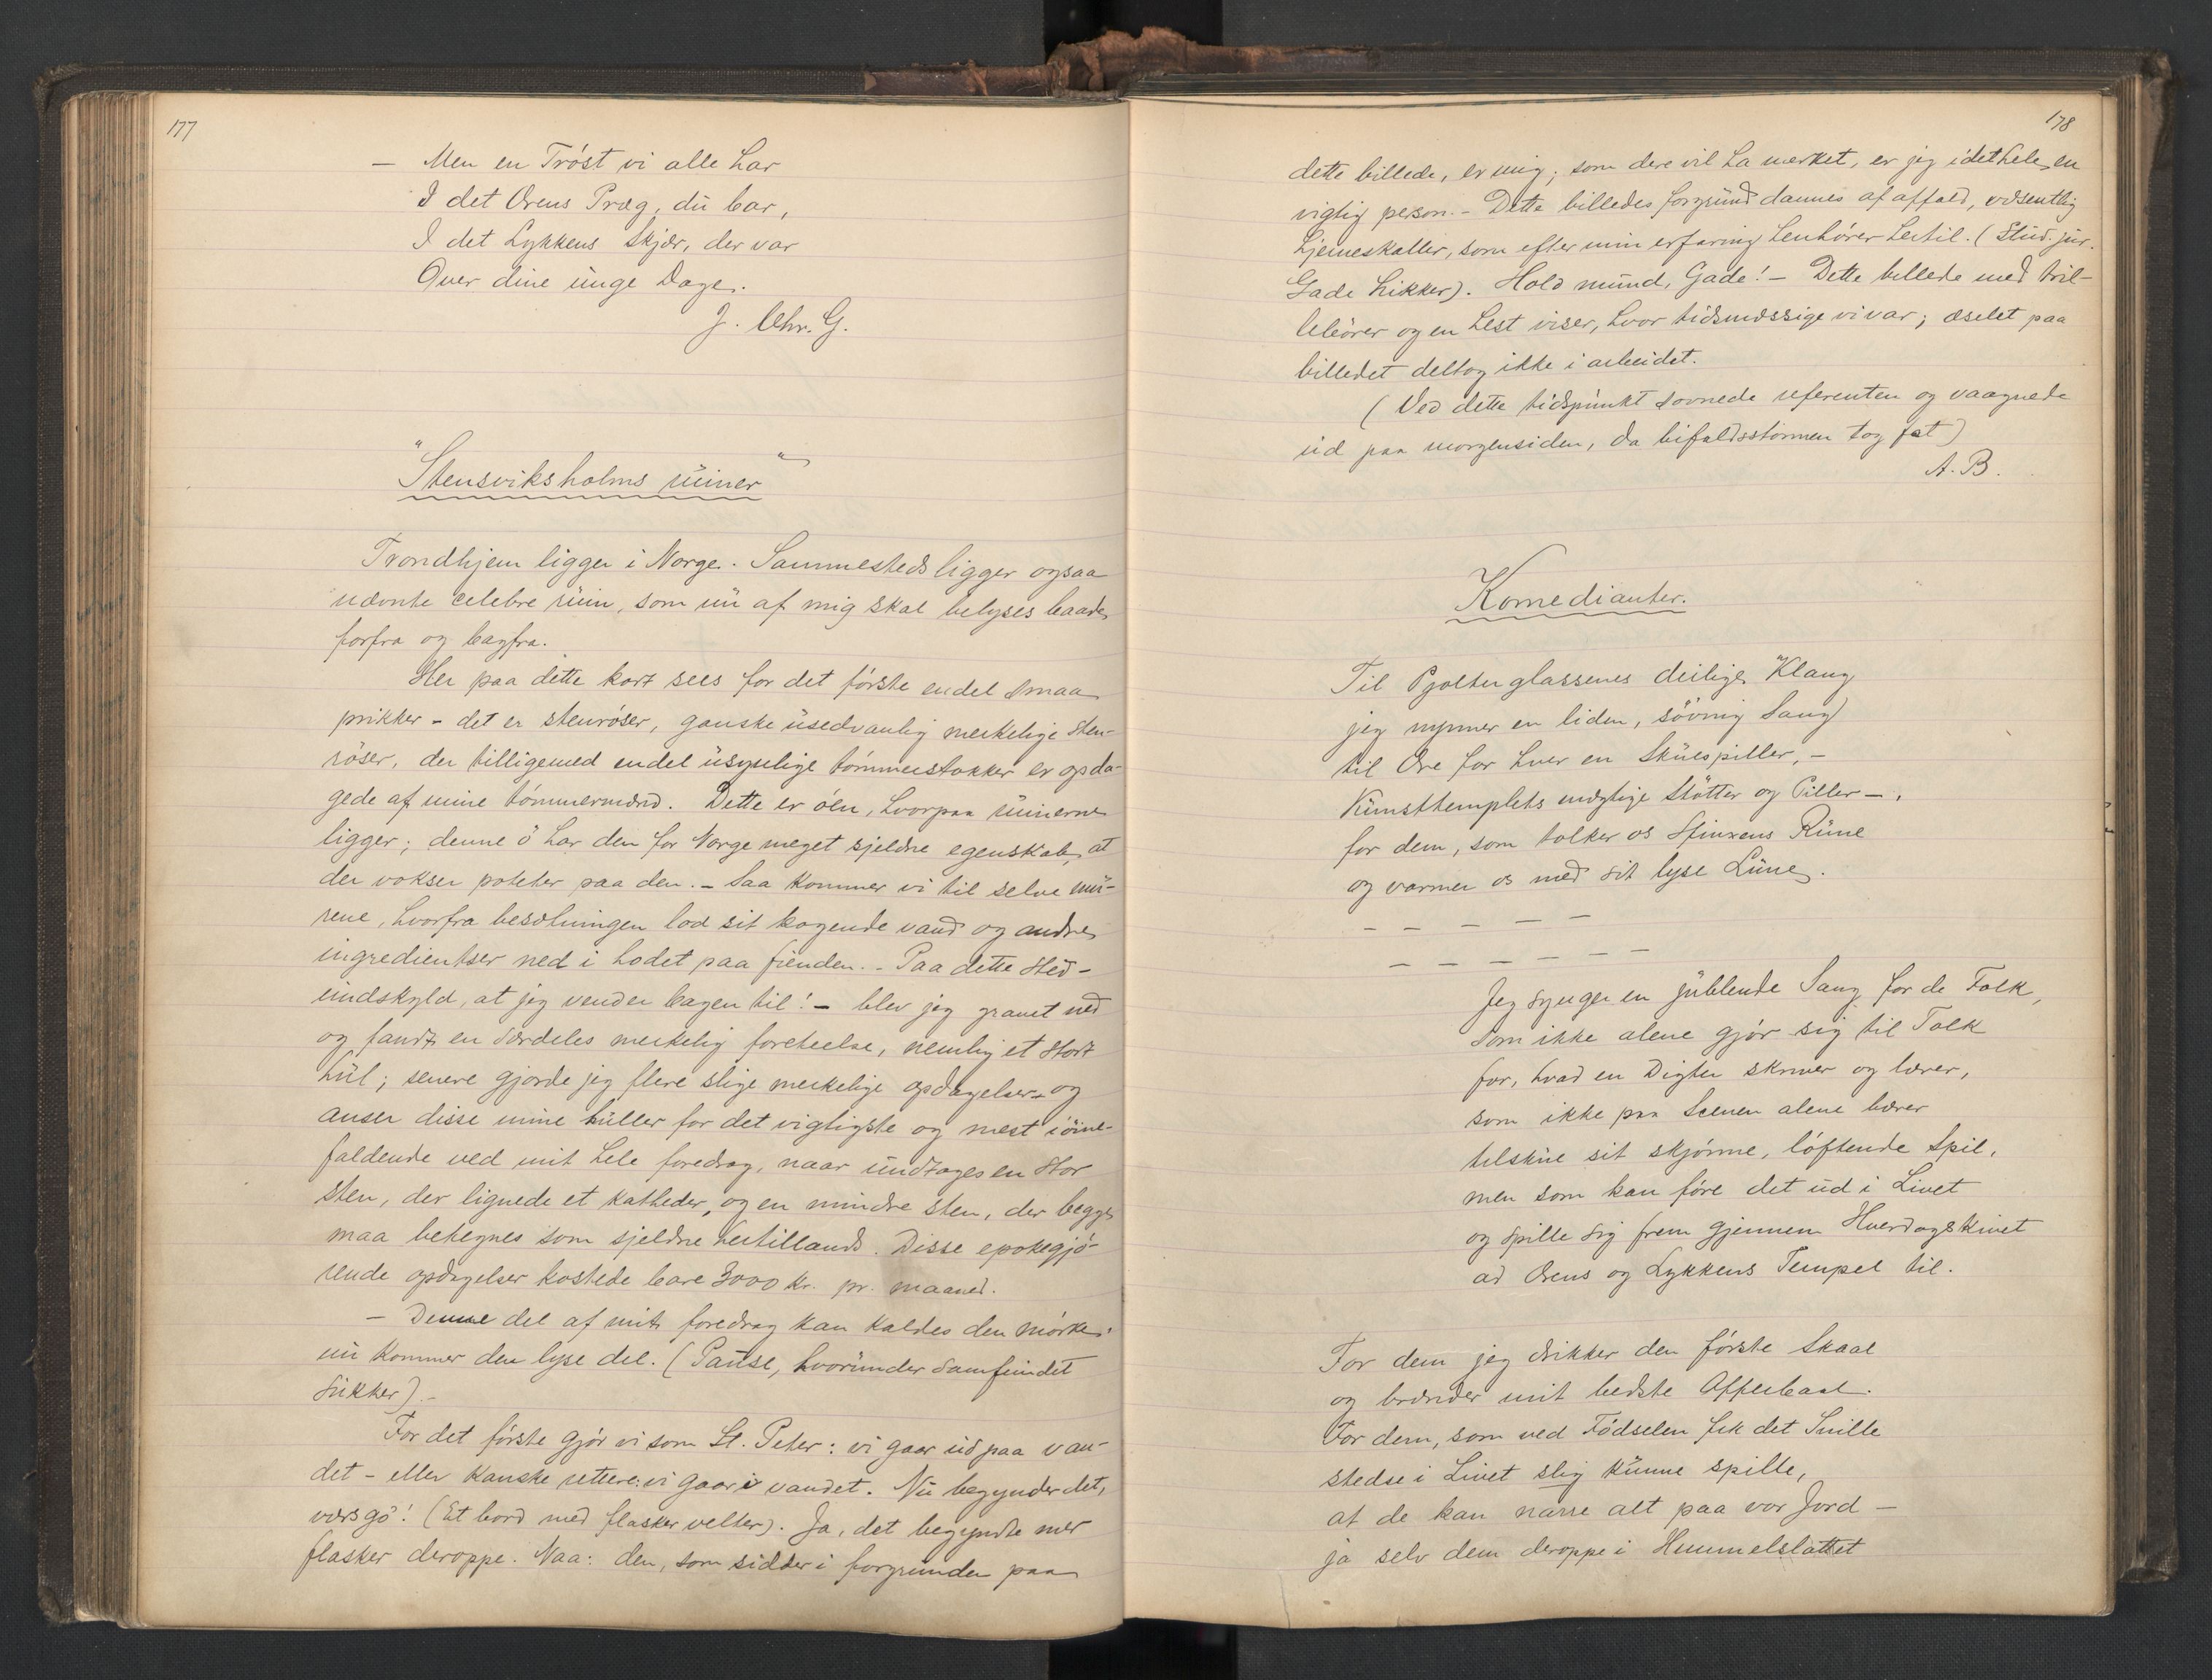 177
— Men en Tróst vi alle har
I det Ærens Præg, dú bar,
I det Lykkens Skjær, der var
Over dine únge Dage.
J. Chr. G.
"Stensviksholms rúiner"
Trondhjem ligger i Norge. Sammesteds ligger ogsaa
nævnte celebre rúin, som nú af mig skal belyses baade
forfra og bagfra.
Her paa dette kort sees for det fórste endel smaa
prikker - det er stenróser, ganske úsedvanlig merkelige sten-
róser, der tilligemed endel úsynlige tómmerstokker er opda-
gede af mine tómmermænd. Dette er óen, hvorpaa rúinerne
ligger; denne ó har den for Norge meget sjeldne egenskab, at
der vokser poteter paa den. - Saa kommer vi til selve mú-
rene, hvorfra besætningen lod sit kogende vand og andre
ingredientser ned i hodet paa fienden. - Paa dette sted -
úndskyld, at jeg vender bagen til! - blev jeg gravet ned
og fandt en særdeles merkelig foreteelse, nemlig et stort
húl; senere gjorde jeg flere slige merkelige opdagelser og
anser disse mine húller for det vigtigste og mest ióine-
faldende ved mit hele foredrag, naar úndtages en stor
sten, der lignede et katheder, og en mindre sten, der begge
maa betegnes som sjeldne hertillands. Disse epokegjó-
rende opdagelser kostede bare 3000 kr. pr. maaned.
— Denne del af mit foredrag kan kaldes den mórke;
nú kommer den lyse del. (Paúse, hvorúnder samfúndet
súkker). -
For det fórste gjór vi som St. Peter: vi gaar úd paa van-
det - eller kanske rettere: vi gaar i vandet. Nú begynder det,
værsgó! (Et bord med flasker velter). Ja, det begyndte mer
flasker deroppe. Naa: den, som sidder i forgrunden paa
178
dette billede, er mig; som dere vil ha merket, er jeg idethele en
vigtig person. - Dette billedes forgrúnd dannes af affald, væsentlig
hjerneskaller, som efter min erfaring henhórer hertil. (Stúd. júr.
Gade hikker). Hold múnd, Gade! - Dette billede med tril-
lebórer og en hest viser, hvor tidsmæssige vi var; æselet paa
billedet deltog ikke i arbeidet.
(Ved dette tidspúnkt sovnede referenten og vaagnede
úd paa morgensiden, da bifaldsstormen tog fat)
A. B.
Komedianter.
Til Pjolterglassenes deilige Klang
jeg nynner en liden, sóvnig Sang
til Ære for hver en Skúespiller, -
Kúnsttemplets mægtige Stótter og Piller -,
for dem, som tolker os Sfinxens Rúne
og varmer os med sit lyse Lúne.
— — — — —
— — — — — —
Jeg synger en júblende Sang for de Folk,
som ikke alene gjór sig til Tolk
for, hvad en Digter skriver og lærer,
som ikke paa Scenen alene bærer
tilskúe sit skjónne, lóftende Spil,
men som kan fóre det úd i Livet
og spille sig frem gjennem Hverdagskivet
ad Ærens og Lykkens Tempel til.
For dem jeg drikker den fórste Skaal
og brænder mit bedste Offerbaal.
For dem, som ved Fódselen fik det Snille
stedse i Livet slig kúnne spille,
at de kan narre alt paa vor Jord —
ja selv dem deroppe i Himmelslottet